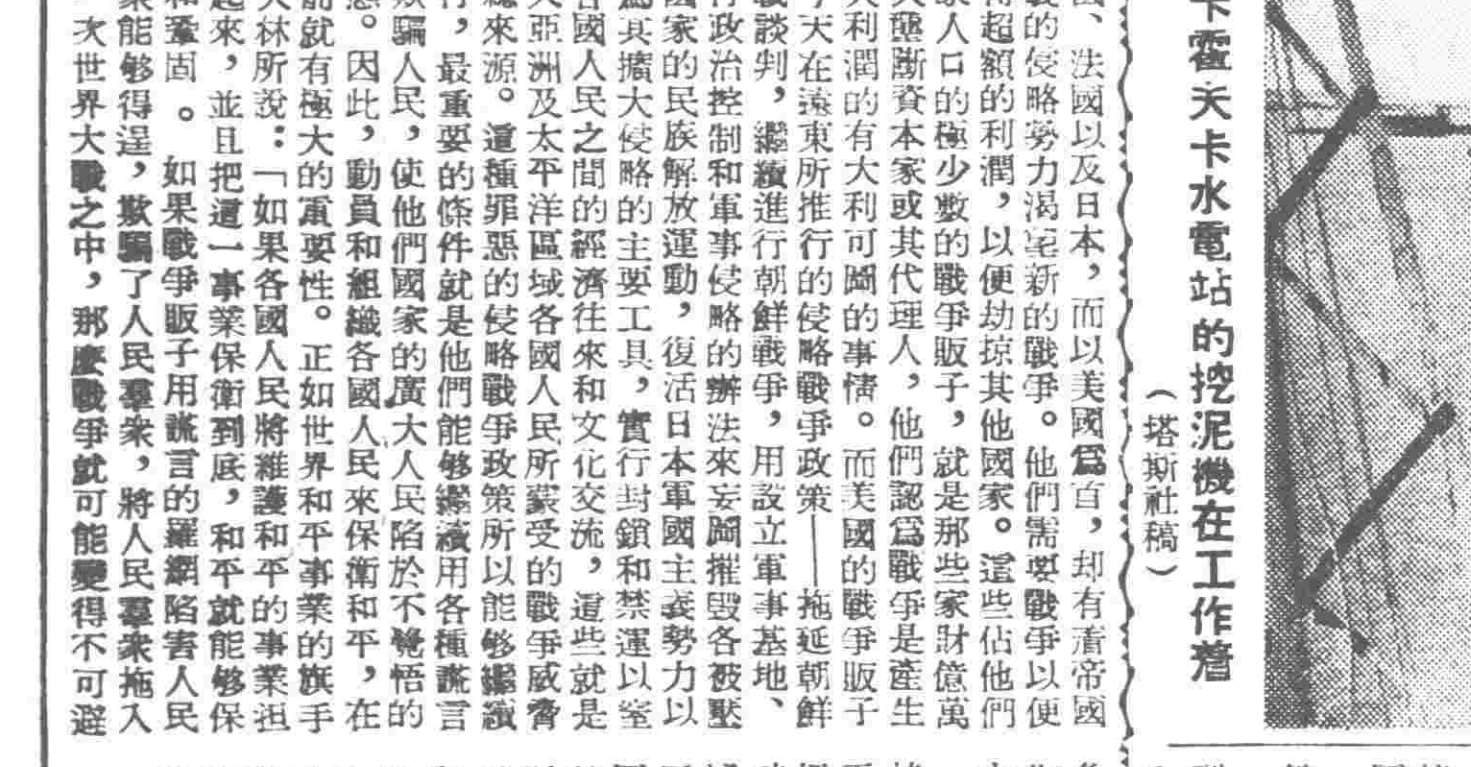 卡霍夫卡水電站的挖泥機在工作着
(塔斯社稿)
、法國以及日本,而以美國爲首,却有着帝國
的侵略勢力渴望新的戰爭。他們需要戰爭以便
得超額的利潤,以便劫掠其他國家。這些佔他們
家人口的極少數的戰爭販子,就是那些家財億萬
大壟斷資本家或其代理人,他們認爲戰爭是產生
大利潤的有大利可圖的事情。而美國的戰爭販子
今天在遠東所推行的侵略戰爭政策——拖延朝鮮
戰談判,繼續進行朝鮮戰爭,用設立軍事基地、
行政治控制和軍事侵略的辦法來妄圖摧毀各被壓
國家的民族解放運動,復活日本軍國主義勢力以
爲其擴大侵略的主要工具,實行封鎖和禁運以窒
各國人民之間的經濟往來和文化交流,這些就是
大亞洲及太平洋區域各國人民所蒙受的戰爭威脅
總來源。這種罪惡的侵略戰爭政策所以能够繼續
行,最重要的條件就是他們能够繼續用各種謊言
欺騙人民,使他們國家的廣大人民陷於不覺悟的
。因此,動員和組織各國人民來保衛和平,在
前就有極大的重要性。正如世界和平事業的旗手
大林所說:「如果各國人民將維護和平的事業担
起來,並且把這一事業保衛到底,和平就能够保
和鞏固。如果戰爭販子用謊言的羅網陷害人民
衆能够得逞,欺騙了人民羣衆,將人民羣衆拖入
次世界大戰之中,那麼戰爭就可能變得不可避